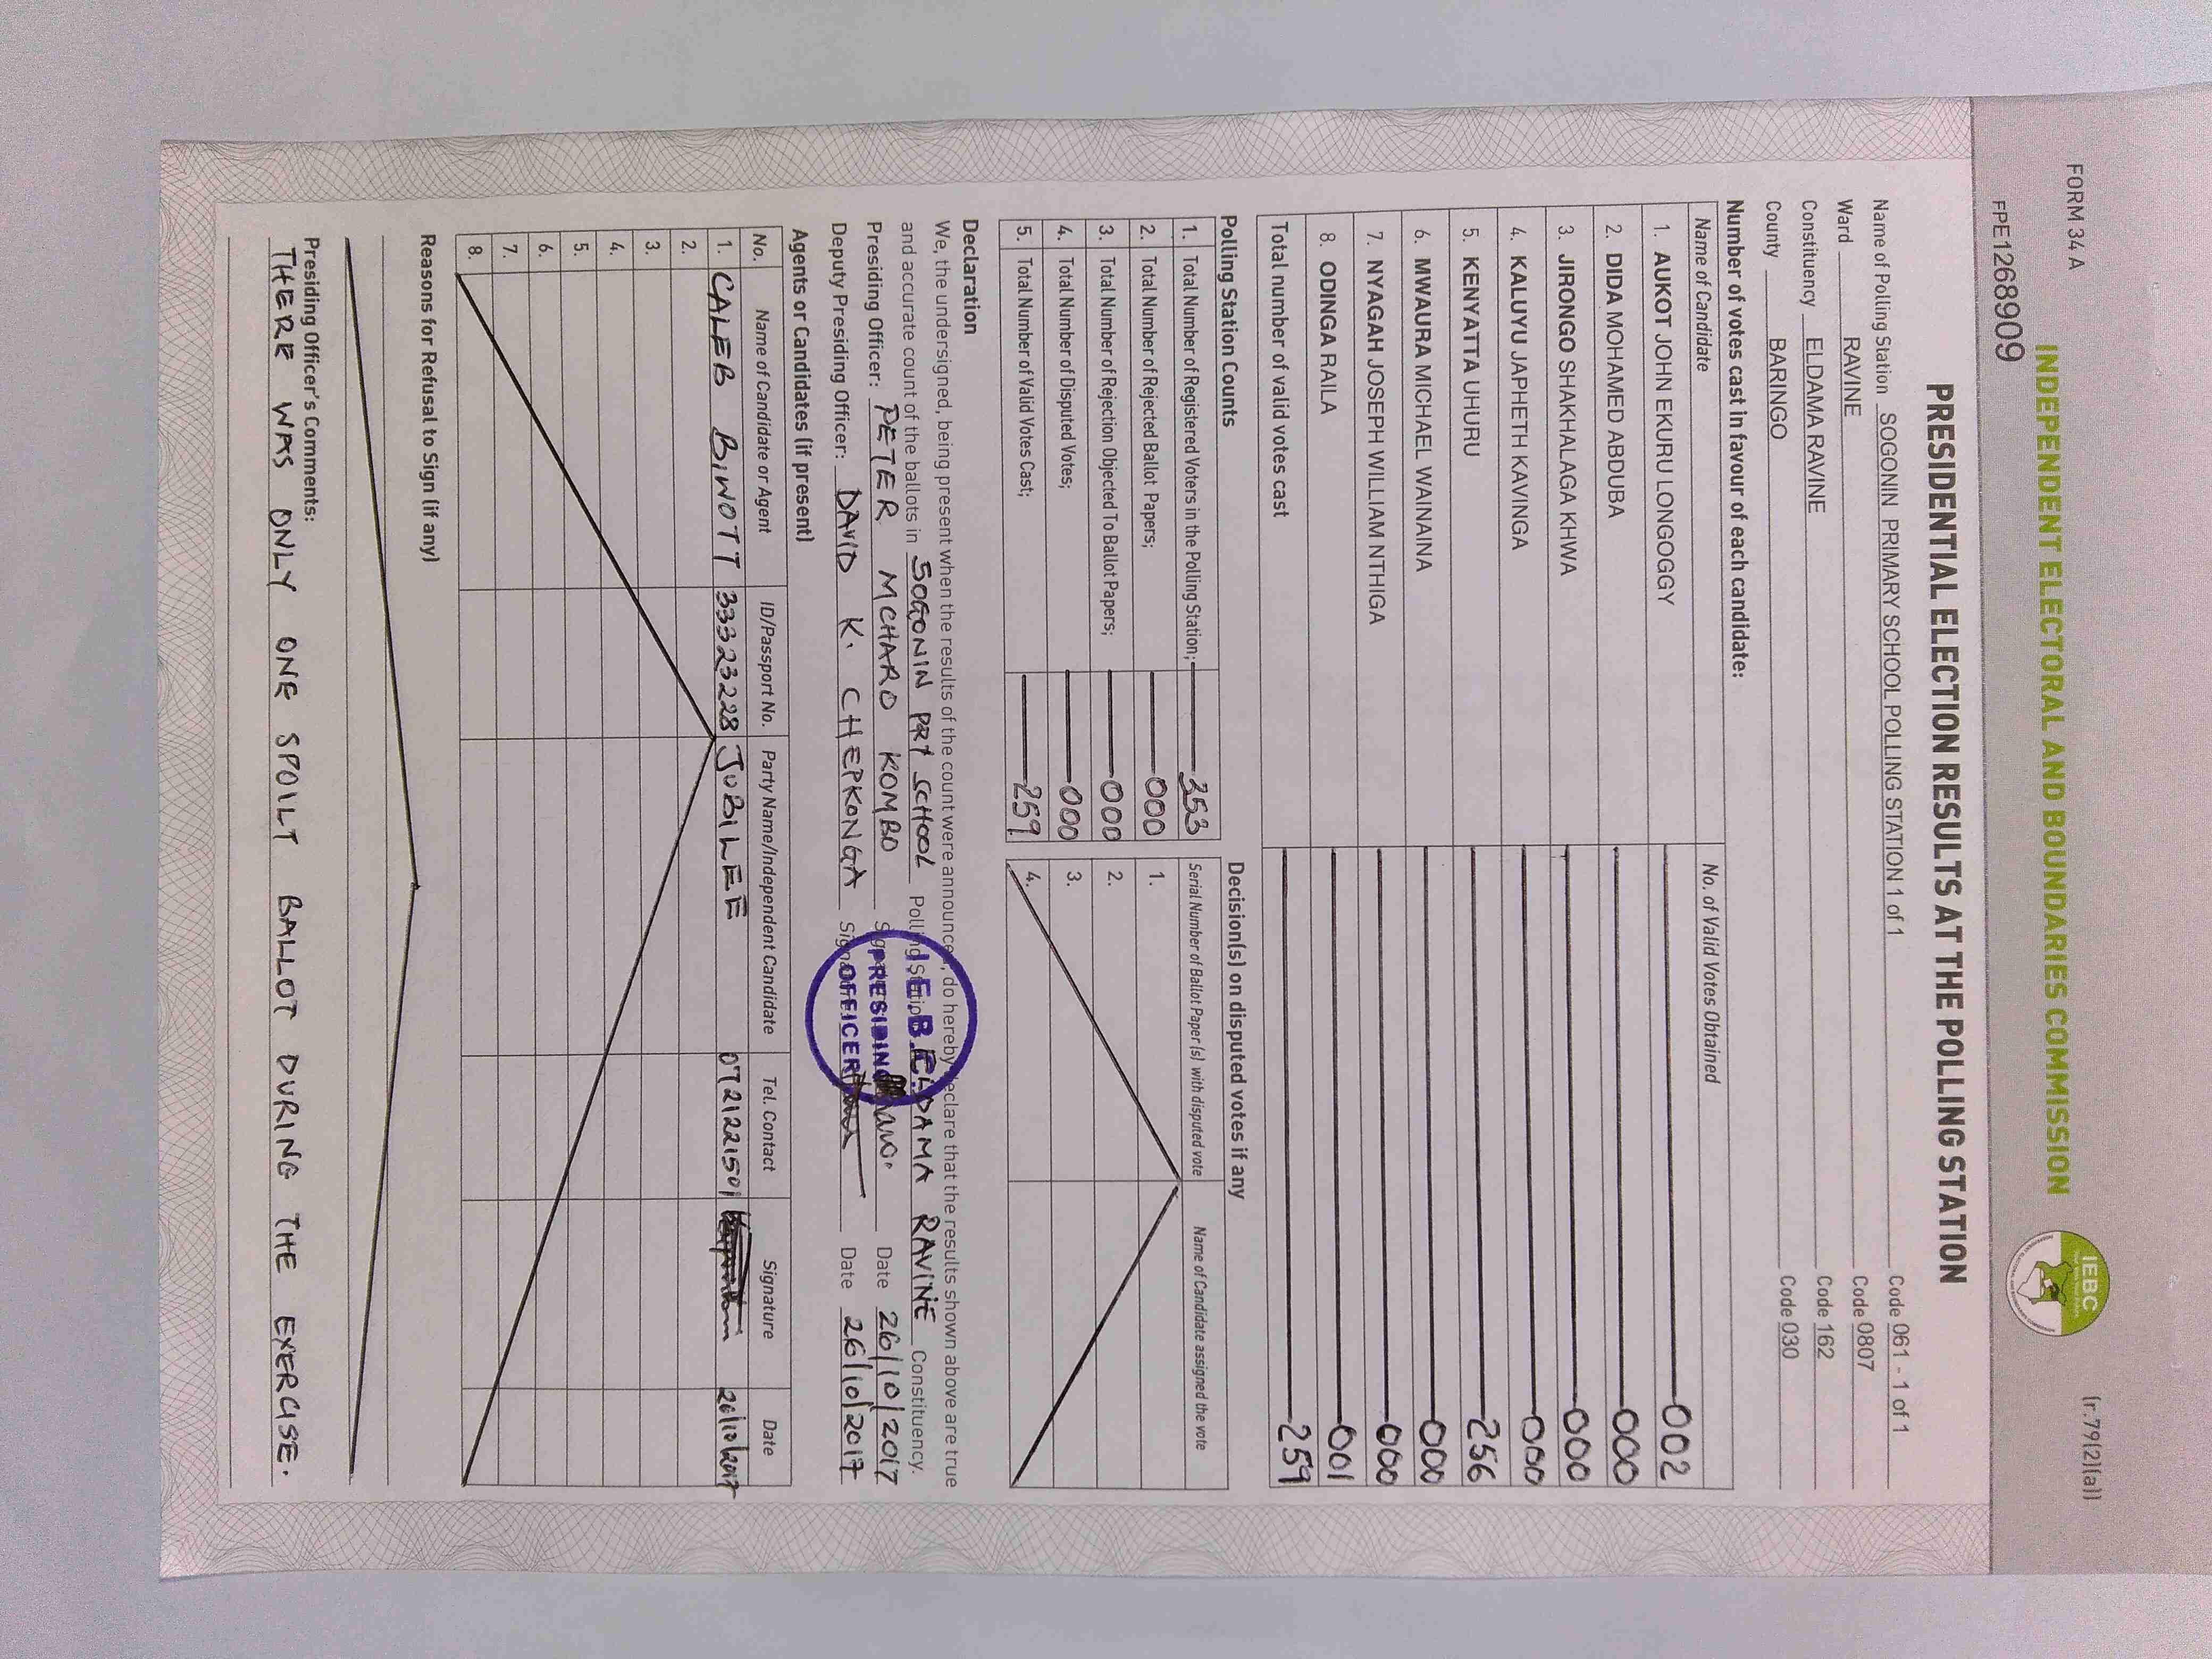 FORM 34 A
(r.79(2)(a))
INDEPENDENT ELECTORAL AND BOUNDARIES COMMISSION
IEBC
FPE1268909
PRESIDENTIAL ELECTION RESULTS AT THE POLLING STATION
Name of Polling Station SOGONIN PRIMARY SCHOOL POLLING STATION 1 of 1 Code 061 - 1 of 1
Ward RAVINE Code 0807
Constituency ELDAMA RAVINE Code 162
County BARINGO Code 030
Number of votes cast in favour of each candidate:
Name of Candidate No. of Valid Votes Obtained
1. AUKOT JOHN EKURU LONGOGGY 002
2. DIDA MOHAMED ABDUBA 000
3. JIRONGO SHAKHALAGA KHWA 000
4. KALUYU JAPHETH KAVINGA 000
5. KENYATTA UHURU 256
6. MWAURA MICHAEL WAINAINA 000
7. NYAGAH JOSEPH WILLIAM NTHIGA 000
8. ODINGA RAILA 001
Total number of valid votes cast 259
Polling Station Counts
1. Total Number of Registered Voters in the Polling Station; 353
2. Total Number of Rejected Ballot Papers; 000
3. Total Number of Rejection Objected To Ballot Papers; 000
4. Total Number of Disputed Votes; 000
5. Total Number of Valid Votes Cast; 259
Decision(s) on disputed votes if any
Serial Number of Ballot Paper (s) with disputed vote Name of Candidate assigned the vote
1.
2.
3.
4.
Declaration
We, the undersigned, being present when the results of the count were announced, do hereby declare that the results shown above are true
and accurate count of the ballots in SOGONIN PRY SCHOOL Polling Station ELDAMA RAVINE Constituency.
Presiding Officer: PETER MCHARO KOMBO Signature Date 26/10/2017
Deputy Presiding Officer: DAVID K. CHEPKONGA Signature Date 26/10/2017
I.E.B.C.
PRESIDING
OFFICER
Agents or Candidates (if present)
No. Name of Candidate or Agent ID/Passport No. Party Name/Independent Candidate Tel. Contact Signature Date
1. CALEB BIWOTT 33323228 JUBILEE 0721221501 26/10/2017
2.
3.
4.
5.
6.
7.
8.
Reasons for Refusal to Sign (if any)
Presiding Officer's Comments:
THERE WAS ONLY ONE SPOILT BALLOT DURING THE EXERCISE.